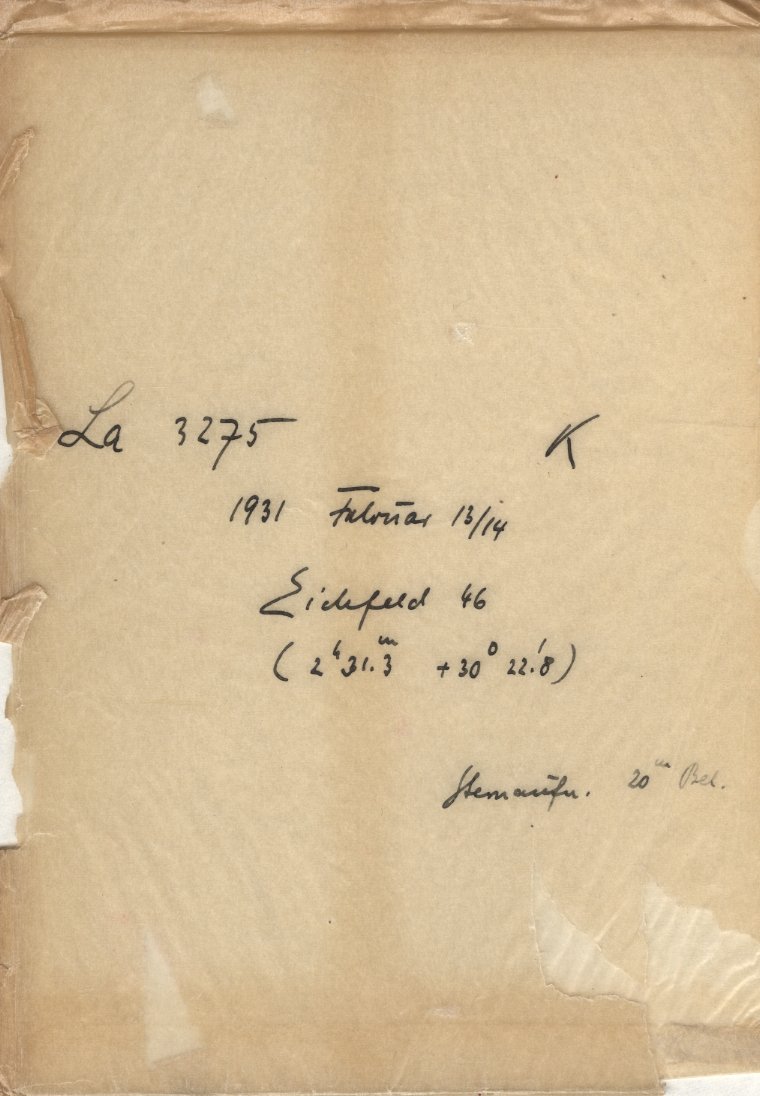 La 3275 K
1931 Februar 13/14
Eichfeld 46
(2ʰ 31.ᵐ3 +30° 22.'8)
Sternaufn. 20ᵐ Bel.